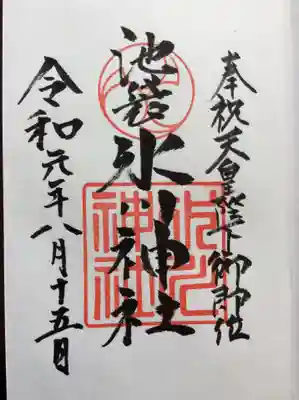 奉祝天皇陛下御即位
池袋氷川神社
令和元年八月十五日
氷川神社